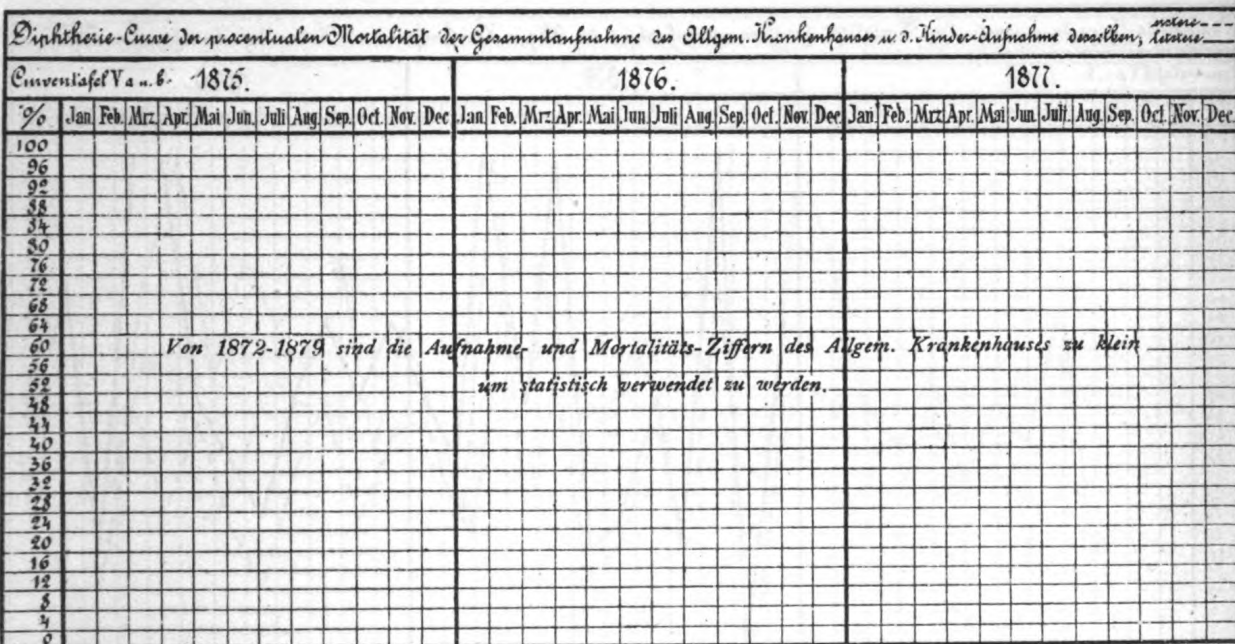 Diphtherie-Curve der procentualen Mortalität der Gesammtaufnahme des Allgem. Krankenhauses u. d. Kinder-Aufnahme desselben, erstere ---
letztere —
Curventafel V a u. b. 1875. 1876. 1877.
% Jan. Feb. Mrz. Apr. Mai Jun. Juli Aug. Sep. Oct. Nov. Dec. Jan. Feb. Mrz. Apr. Mai Jun. Juli Aug. Sep. Oct. Nov. Dec. Jan. Feb. Mrz. Apr. Mai Jun. Juli. Aug. Sep. Oct. Nov. Dec.
100
96
92
88
84
80
76
72
68
64
60
Von 1872-1879 sind die Aufnahme- und Mortalitäts-Ziffern des Allgem. Krankenhauses zu klein
56
52
um statistisch verwendet zu werden.
48
44
40
36
32
28
24
20
16
12
8
4
0